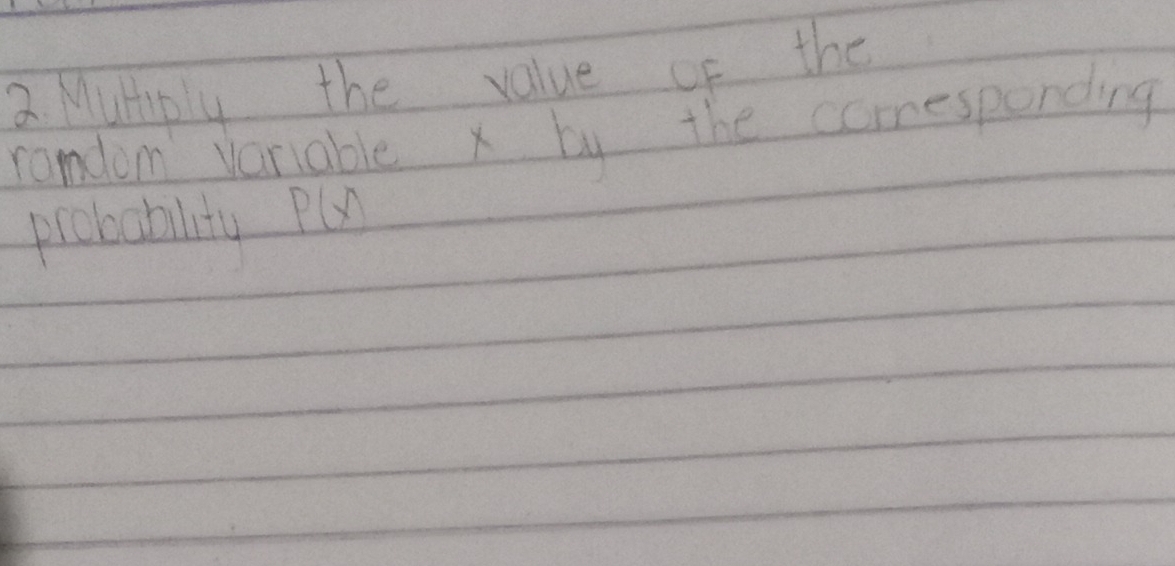 2. Multiply the value of the
random variable x by the corresponding
probability P(x)